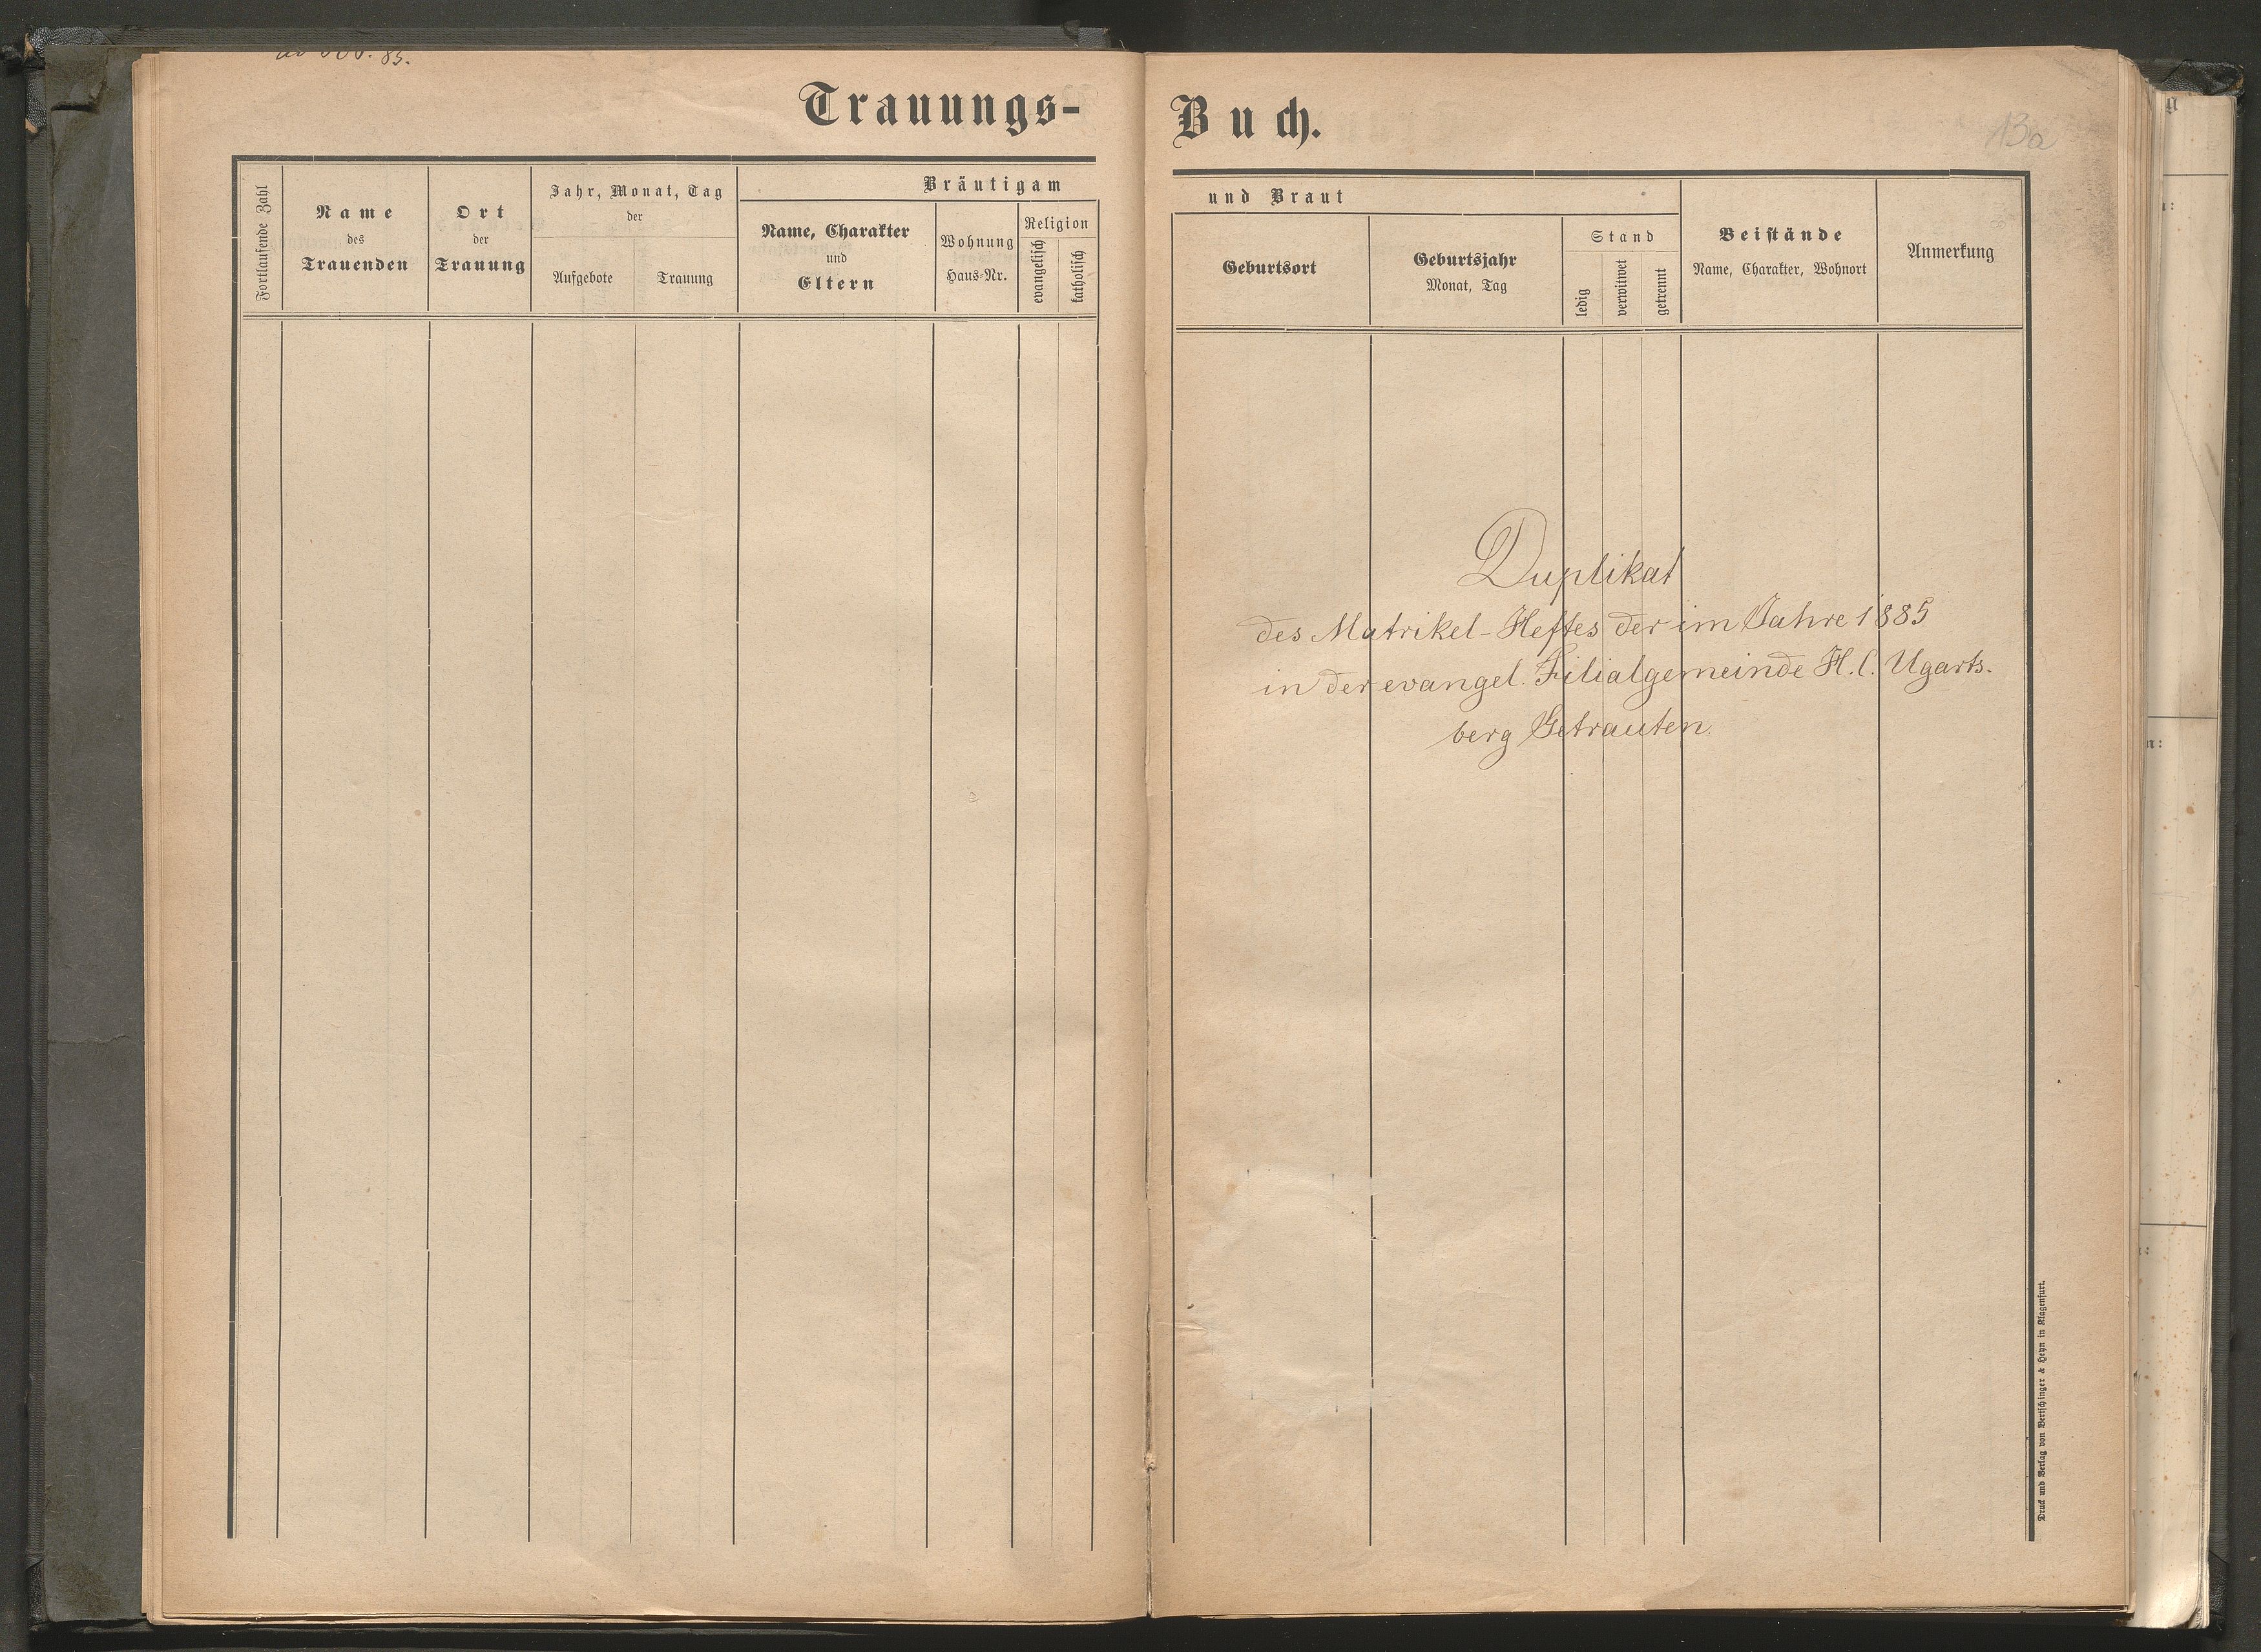 85.
Trauungs-
Buch.
13a
Fortlaufende Zahl
Name
des
Trauenden
Ort
der
Trauung
Jahr, Monat, Tag
der
Aufgebote
Trauung
Bräutigam
Name, Charakter
und
Eltern
Wohnung
Haus-Nr.
Religion
evangelisch
katholisch
und Braut
Geburtsort
Geburtsjahr
Monat, Tag
Stand
ledig
verwitwet
getrennt
Beistände
Name, Charakter, Wohnort
Anmerkung
Duplikat
des Matrikel-Heftes der im Jahre 1885
in der evangel. Filialgemeinde H.C. Ugarts-
berg Getrauten.
Druck und Verlag von Bertschinger & Heyn in Klagenfurt.